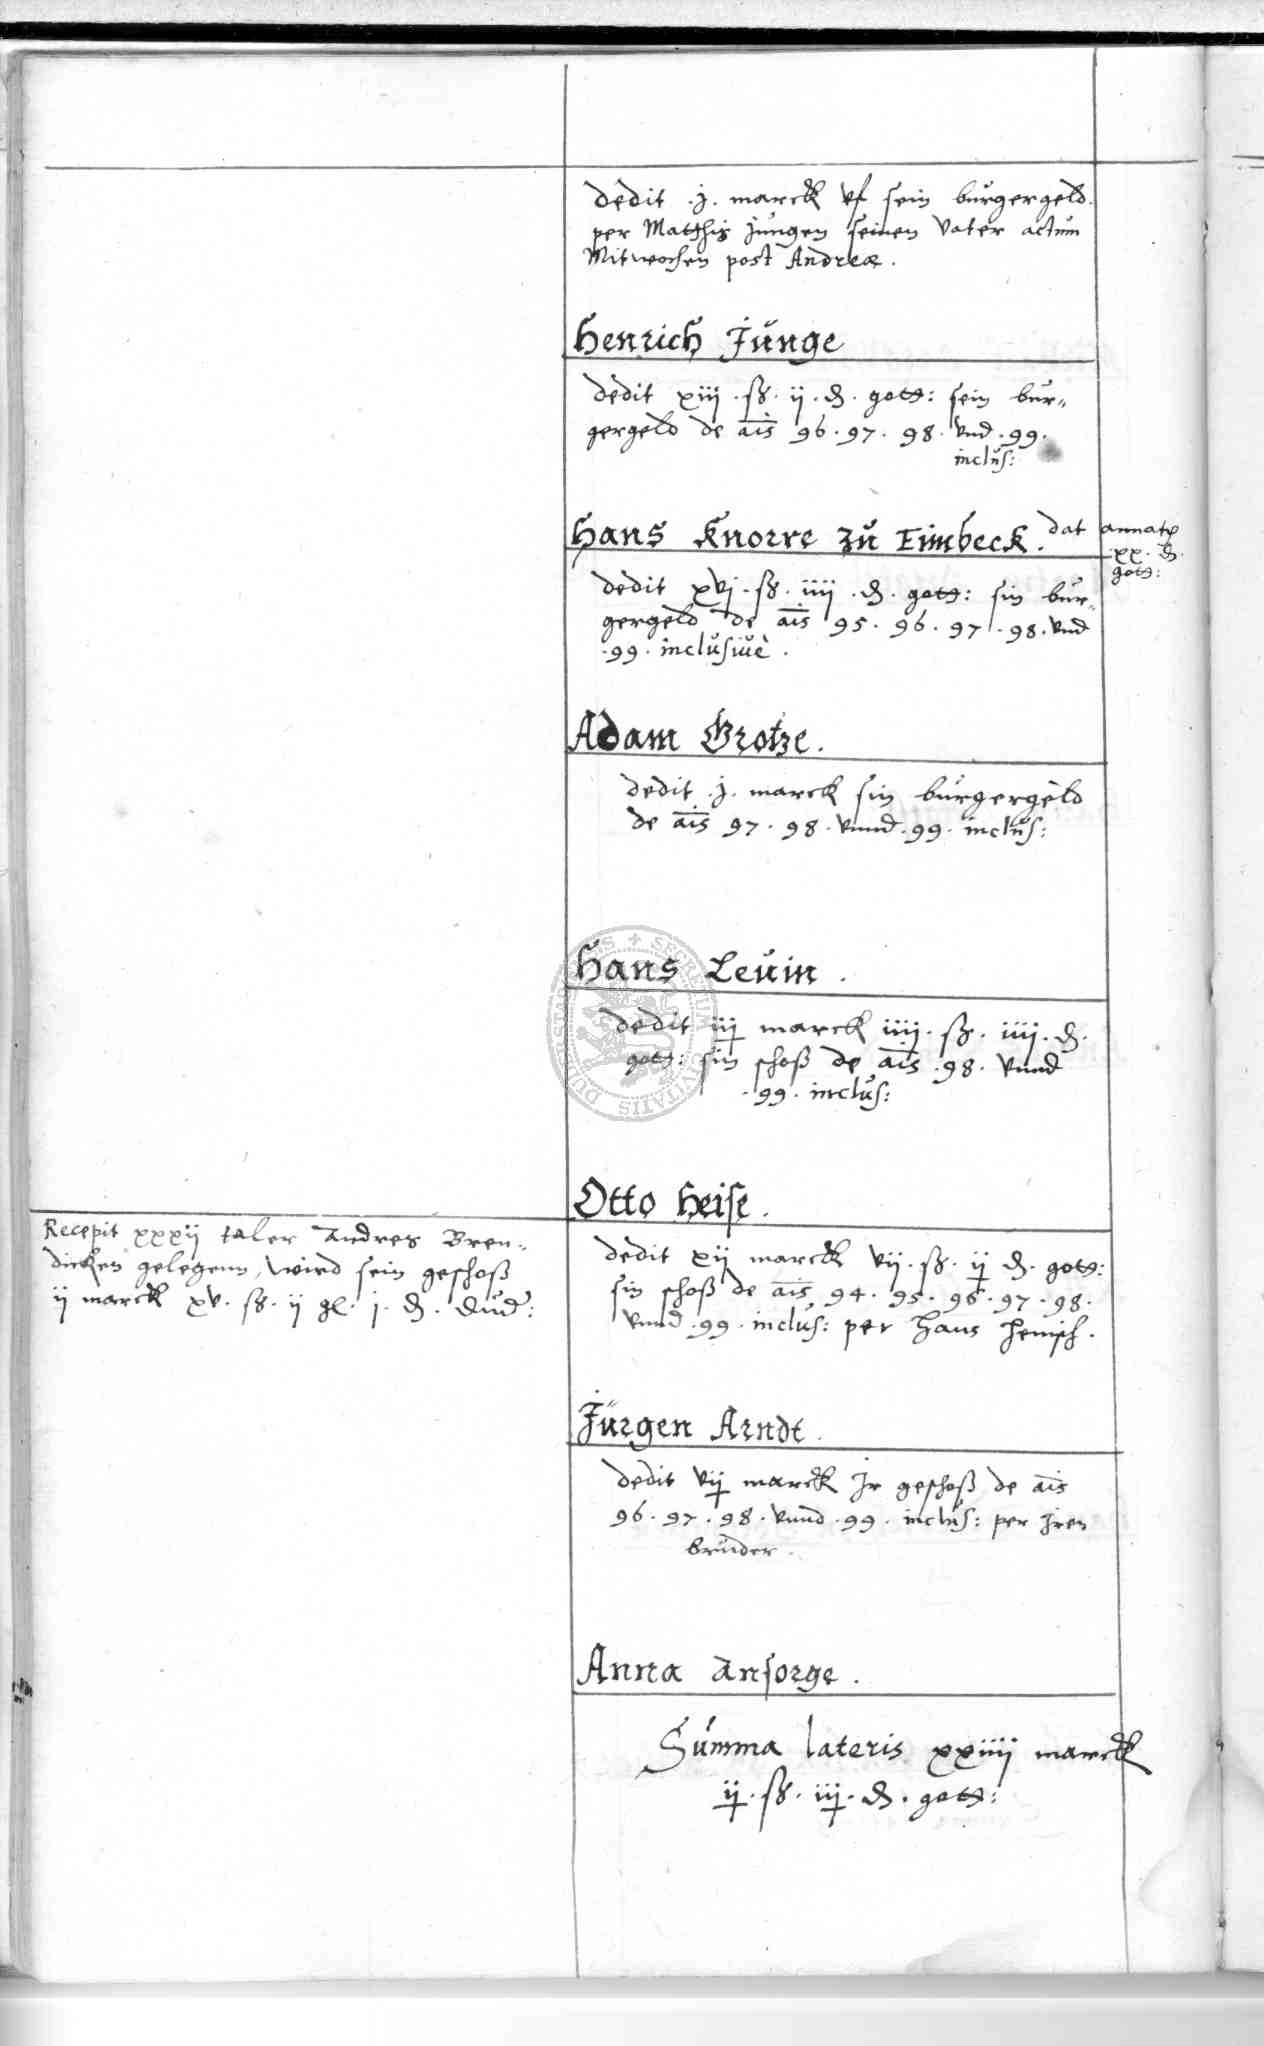 dedit .j. marck vf sein burgergeld.
per Matthis Jungen seinen Vater actum
Mitwochen post Andreæ.
Henrich Junge
dedit xiij .ß. ij .₰. gott: sein bur„
gergeld de ais 96 . 97 . 98 . vnd . 99 .
inclus:
Hans Knorre zu Eimbeck. dat annatī
xx. ₰.
gott:
dedit xvj .ß. iiij .₰. gott: sin bur„
gergeld de ais 95 . 96 . 97 . 98 . vnd
. 99 . inclusiuè .
Adam Grotze .
dedit .j. marck sin burgergeld
de ais 97 . 98 . vnnd . 99 . inclus:
Hans Leuin .
dedit iij marck iiij .ß. iiij .₰.
gott: sin schoß de ais . 98 . vnnd
. 99 . inclus:
SECRETUM CIVITATIS
Otto Heise .
Recepit xxxij taler Andres Bren„
dicken gelegenn, wird sein geschoß
ij marck xv .ß. ij gl. j .₰. Dud:
dedit xij marck vij .ß. ij ₰. gott:
sin schoß de ais 94 . 95 . 96 . 97 . 98 .
vnnd . 99 . inclus: per Hans Henisch .
Jürgen Arndt .
dedit vij marck Jr geschoß de ais
96 . 97 . 98 . vnnd . 99 . inclus: per Jren
bruder .
Anna Ansorge .
Summa lateris xxiiij marck
ij .ß. iij .₰. gott: